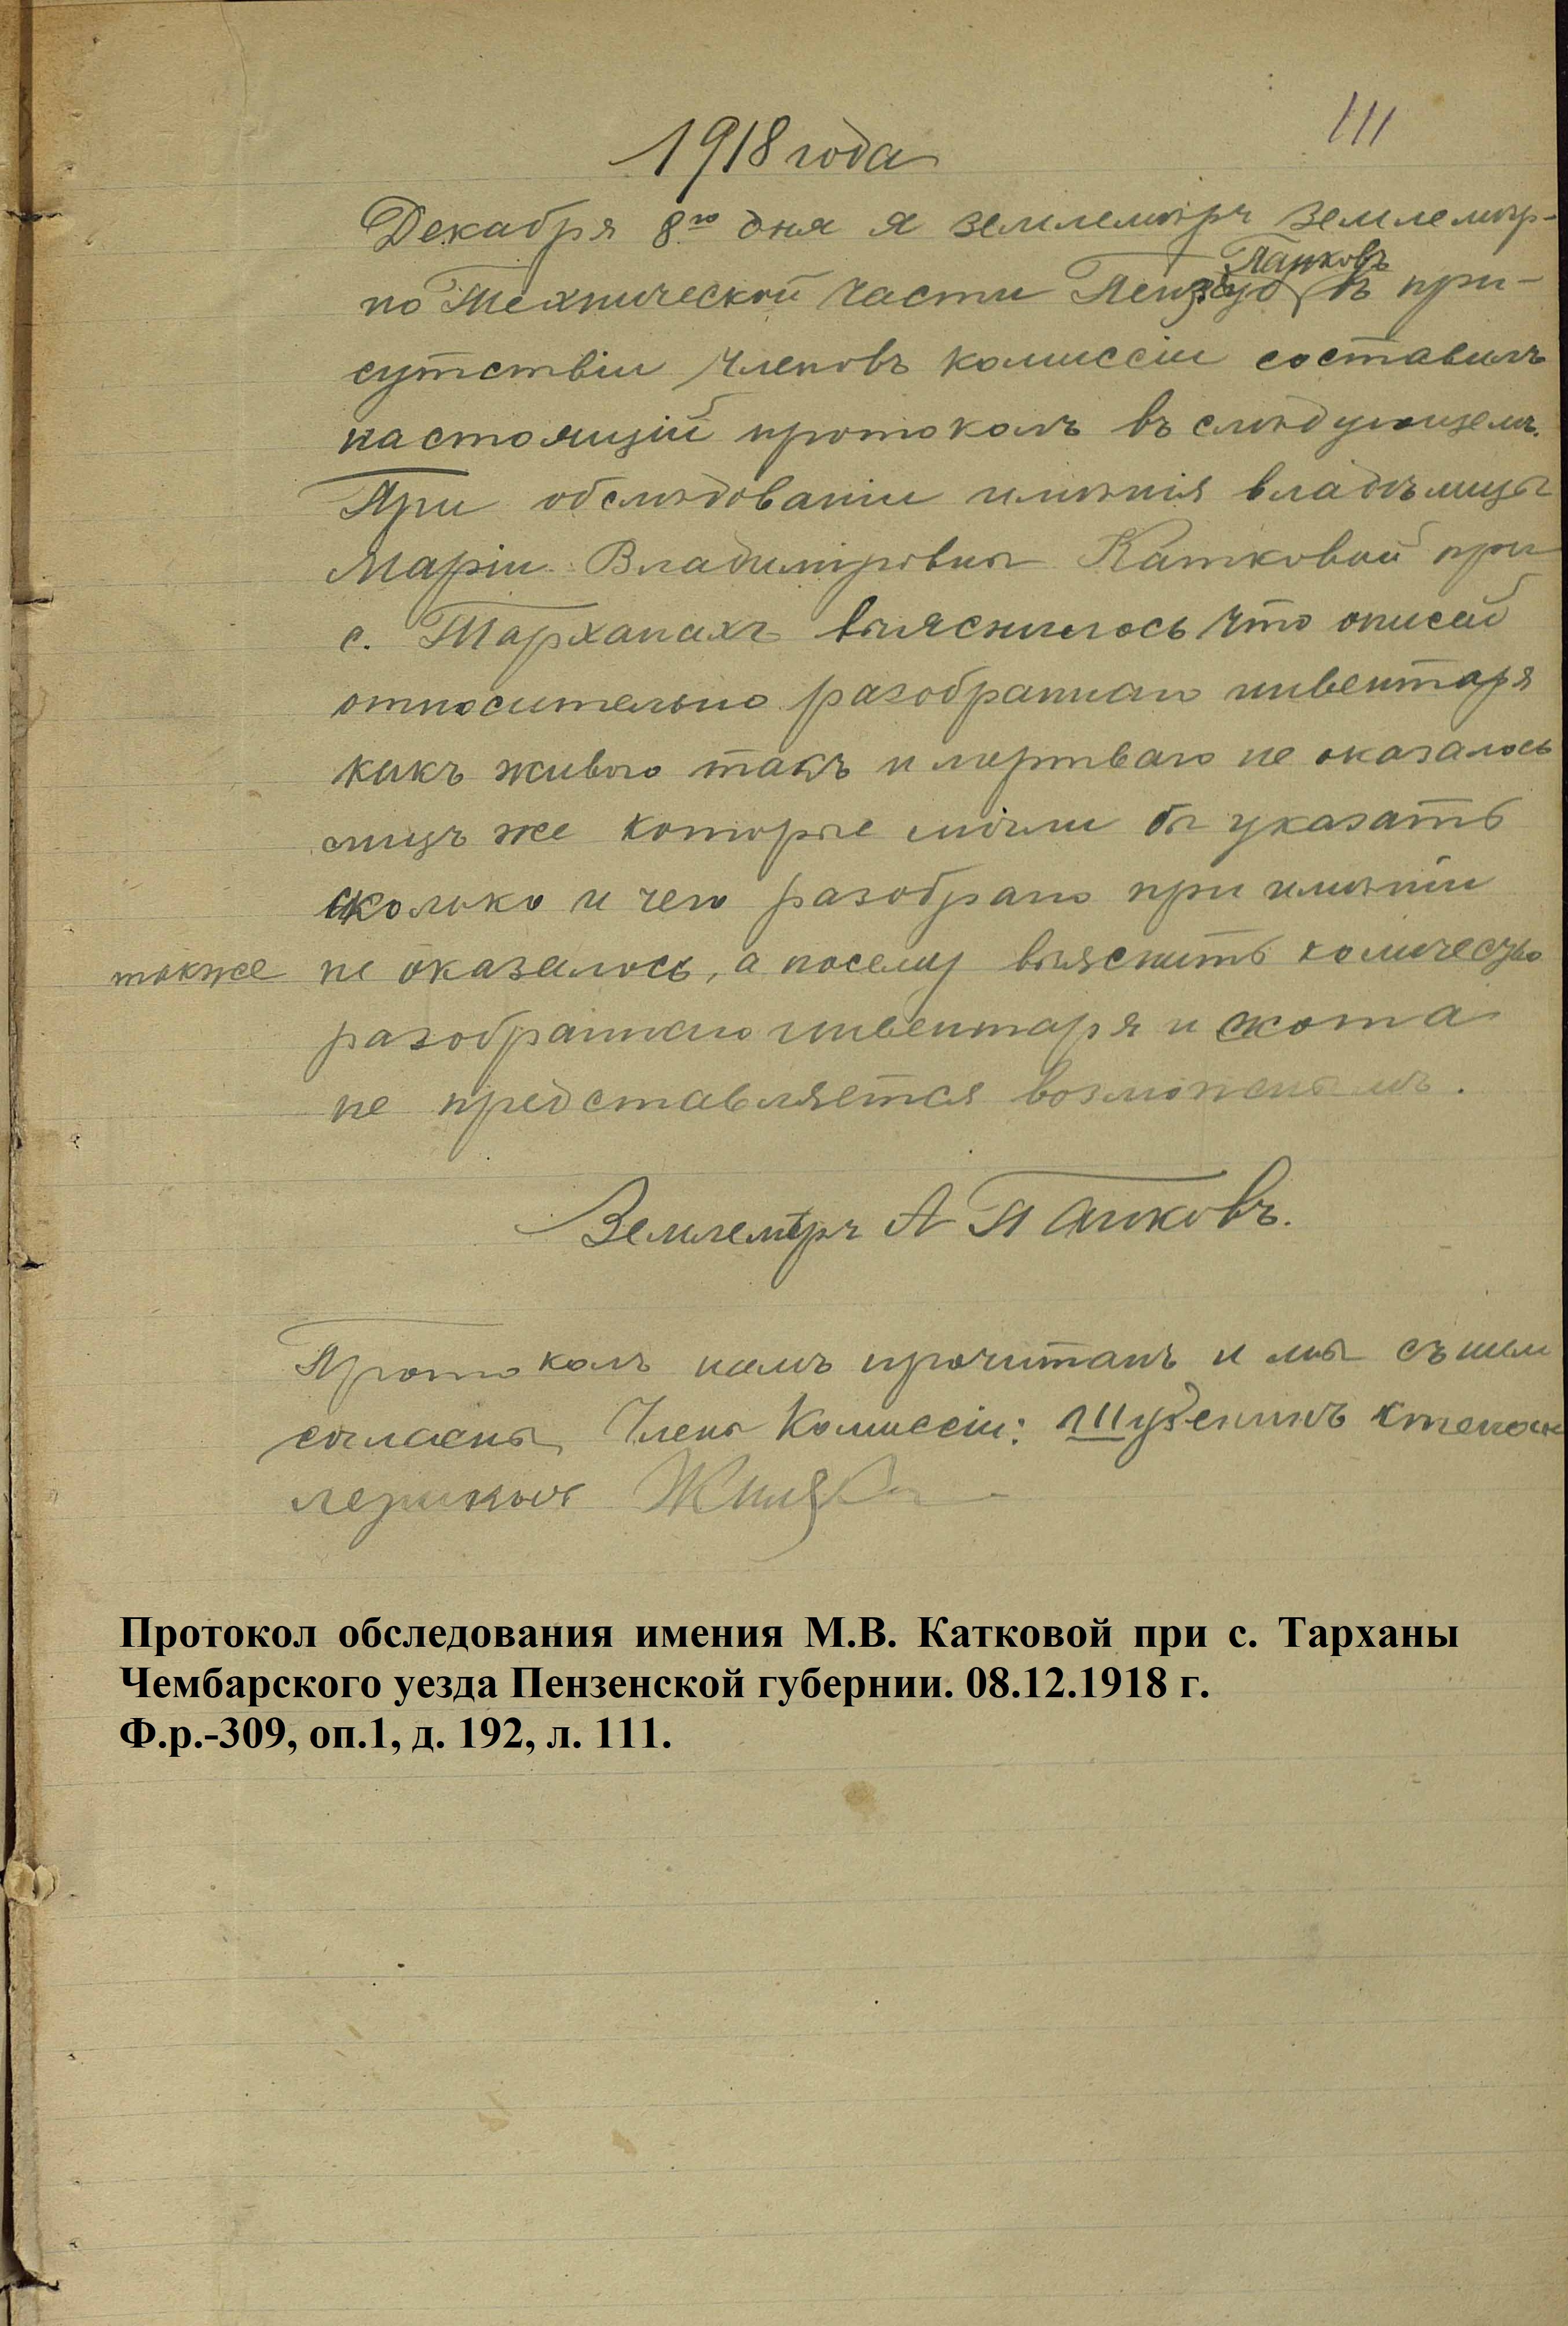 111
1918 года
Декабря 8го дня я землемѣръ землемѣр-
по Технической части Пенз Панковъ въ при-
сутствіи членовъ комиссіи составилъ
настоящій протоколъ въ слѣдующемъ.
При обслѣдованіи имѣнія владѣлицы
Маріи Владиміровны Катковой при
с. Тарханахъ выяснилось что описей
относительно разобраннаго инвентаря
какъ живого такъ и мертваго не оказалось
лицъ же которые могли бы указать
сколько и чего разобрано при имѣніи
также не оказалось, а посему выяснить количество
разобраннаго инвентаря и скота
не представляется возможнымъ.
Землемѣръ А Панковъ.
Протоколъ намъ прочитанъ и мы съ нимъ
согласны Члены Комиссіи:
Протокол обследования имения М.В. Катковой при с. Тарханы
Чембарского уезда Пензенской губернии. 08.12.1918 г.
Ф.р.-309, оп.1, д. 192, л. 111.